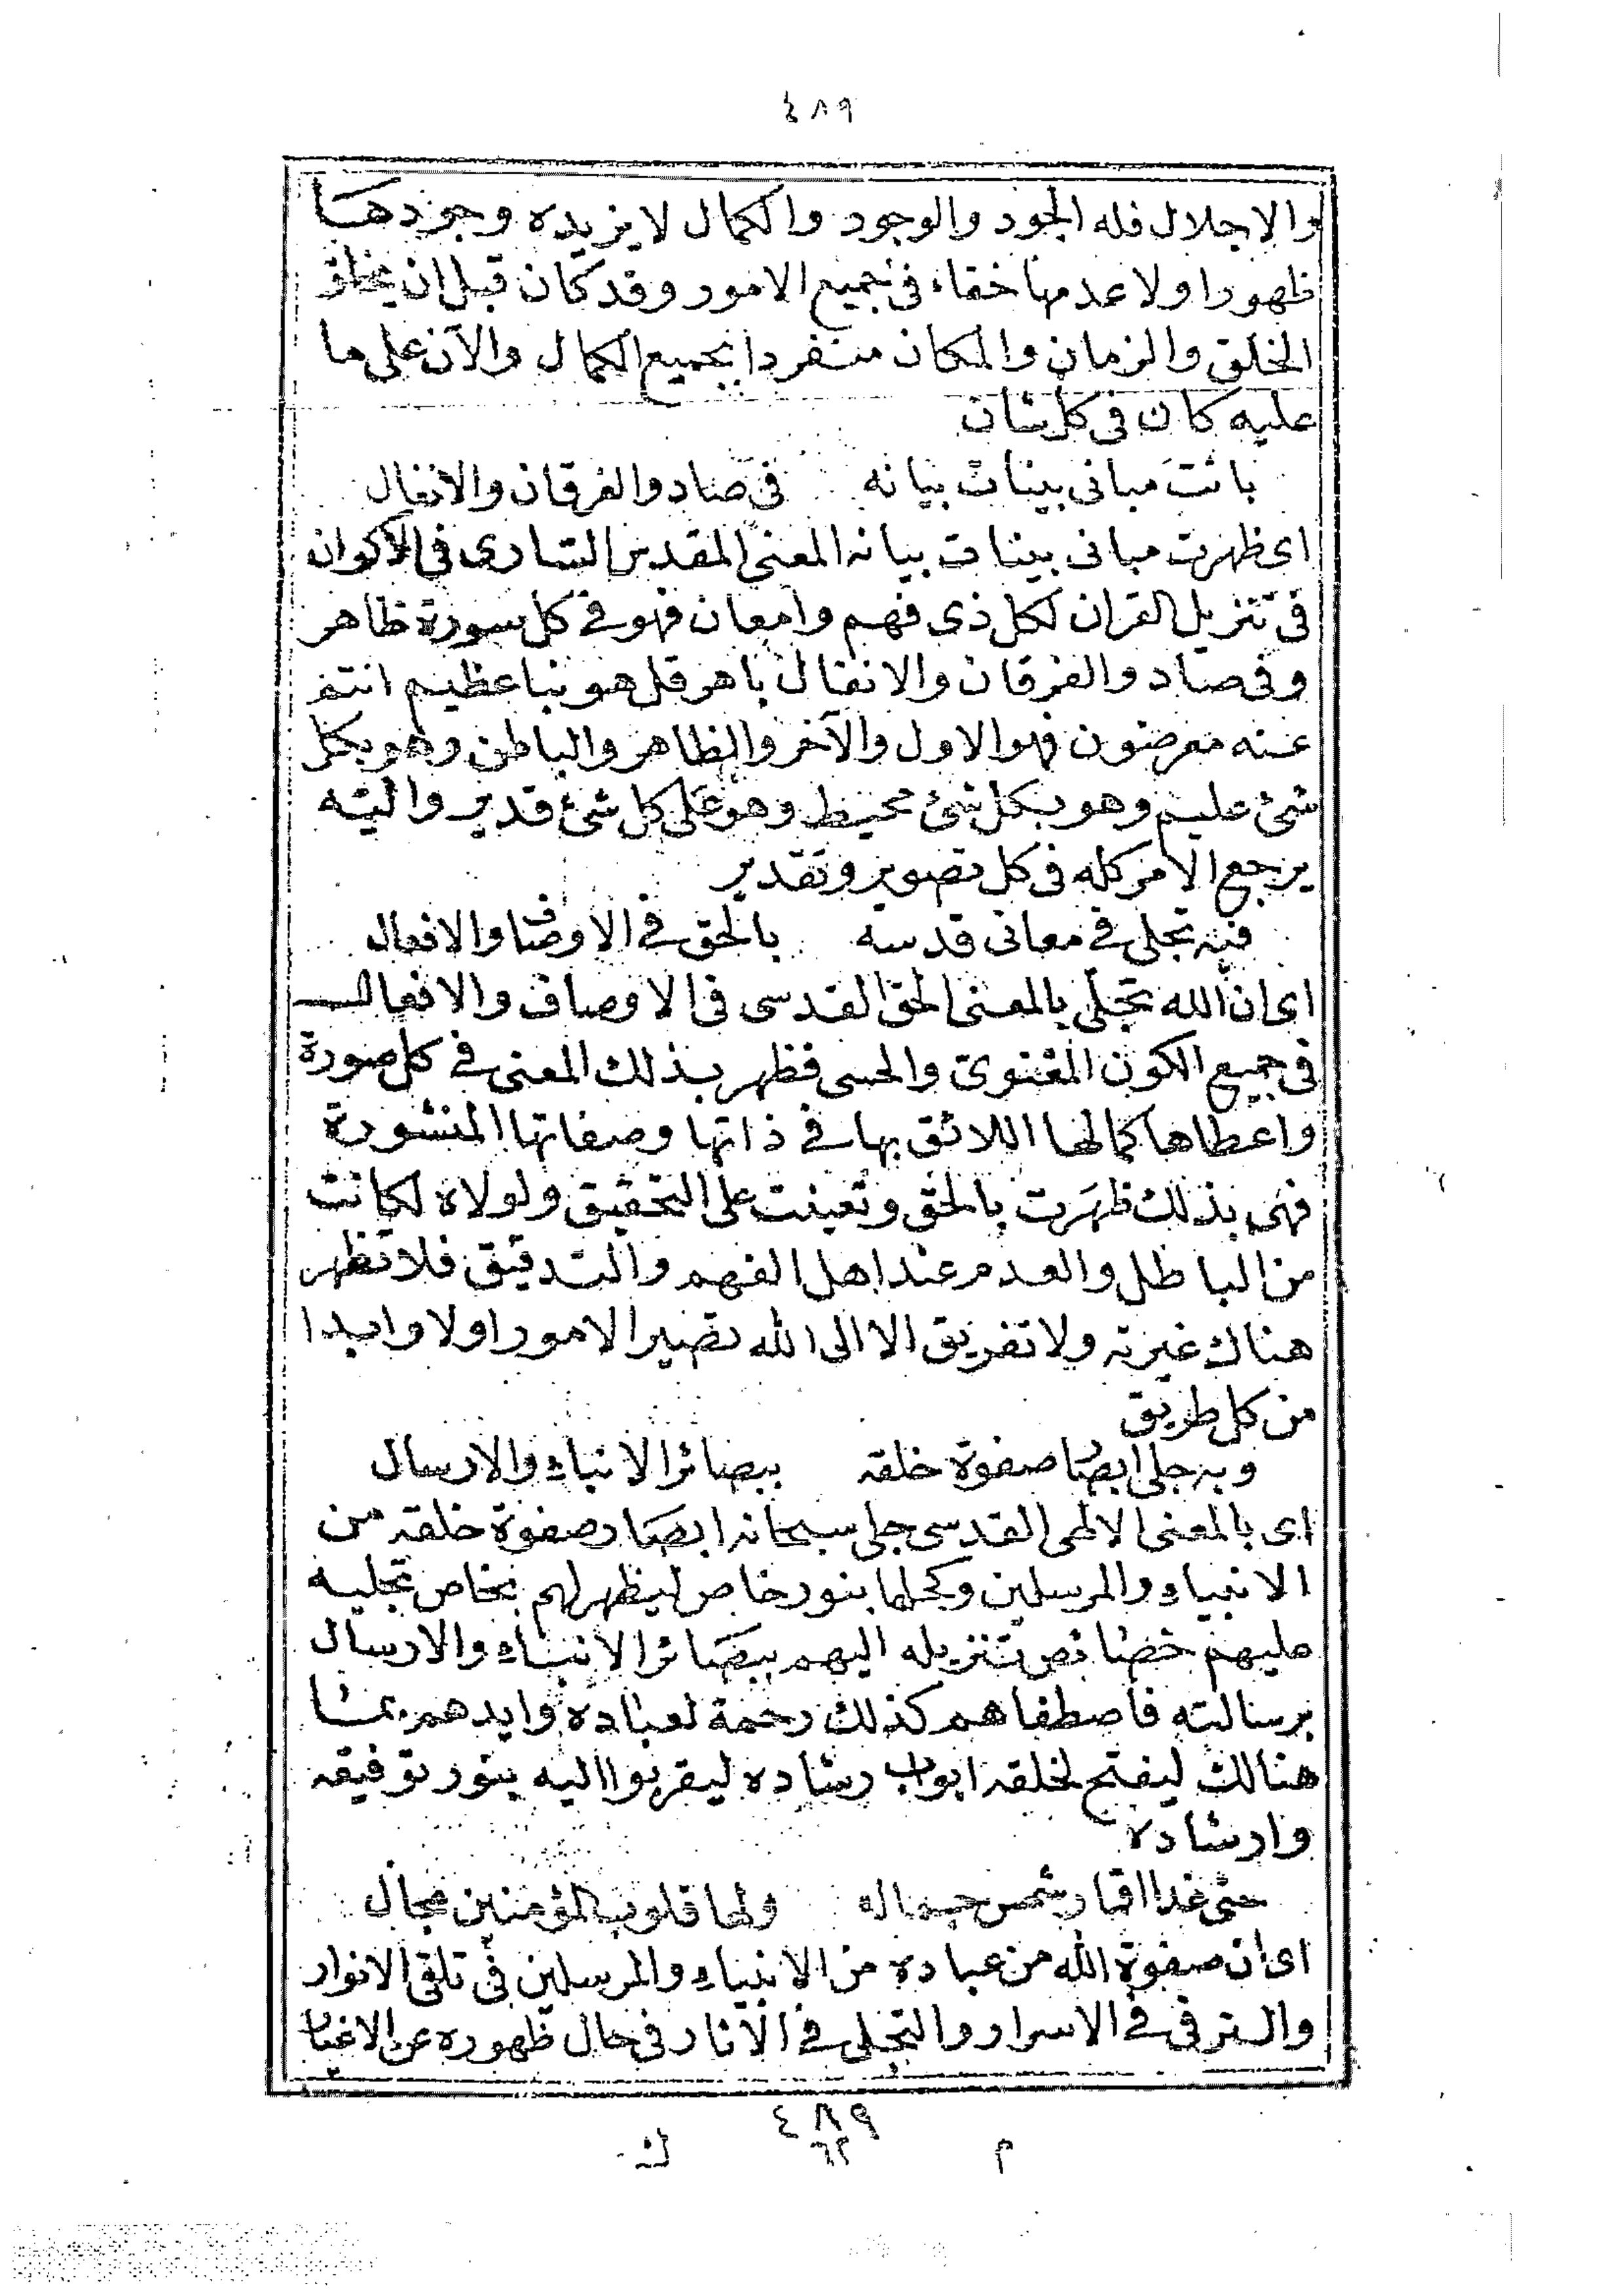 ٤٨٩
والاجلال فله الجود والوجود والكمال لا يزيده وجودها
ظهورا ولا عدمها خفاء في جميع الامور وقد كان قبل ان يخلق
الخلق والزمان والمكان منفردا بجميع الكمال والآن على ما
عليه كان في كل شان
بانت مباني بينات بيانه في صاد والفرقان والانفال
اى ظهرت مباني بينات بيانه المعنى المقدس السارى في الاكوان
في تنزيل القران لكل ذى فهم وامعان فهو في كل سورة ظاهر
وفي صاد والفرقان والانفال باهر قل هو نبا عظيم انتم
عنه معرضون فهو الاول والآخر والظاهر والباطن وهو بكل
شئ عليم وهو بكل شئ محيط وهو على كل شئ قدير واليه
يرجع الامر كله في كل تصوير وتقدير
فيه تجلى في معاني قدسه بالحق في الاوصاف والافعال
اى ان الله تجلى بالمعنى الحق القدسى في الاوصاف والافعال
في جميع الكون المعنوى والحسى فظهر بذلك المعنى في كل صورة
واعطاها كمالها اللائق بها في ذاتها وصفاتها المنشورة
فهى بذلك ظهرت بالحق وتعينت على التحقيق ولولاه لكانت
من الباطل والعدم عند اهل الفهم والتدقيق فلا تظهر
هناك غيرته ولا تفريق الا الى الله تصير الامور اولا وابدا
من كل طريق
وبه جلى ابصار صفوة خلقه ببصائر الانباء والارسال
اى بالمعنى الالهى القدسى جلى سبحانه ابصار صفوة خلقه من
الانبياء والمرسلين وكحلها بنور خاص ليظهر لهم بخاص تجليه
عليهم خصائص تنزيله اليهم ببصائر الانباء والارسال
برسالته فاصطفاهم كذلك رحمة لعباده وايدهم بما
هنالك ليفتح لخلقه ابواب رشاده ليقربوا اليه بنور توفيقه
وارشاده
حتى غدا اقمار شمس جماله ولها قلوب المؤمنين مجال
اى ان صفوة الله من عباده من الانبياء والمرسلين في تلقى الانوار
والترقى في الاسرار والتجلى في الآثار في حال ظهوره عن الاغيار
٤٨٩
م ٦٢ ك